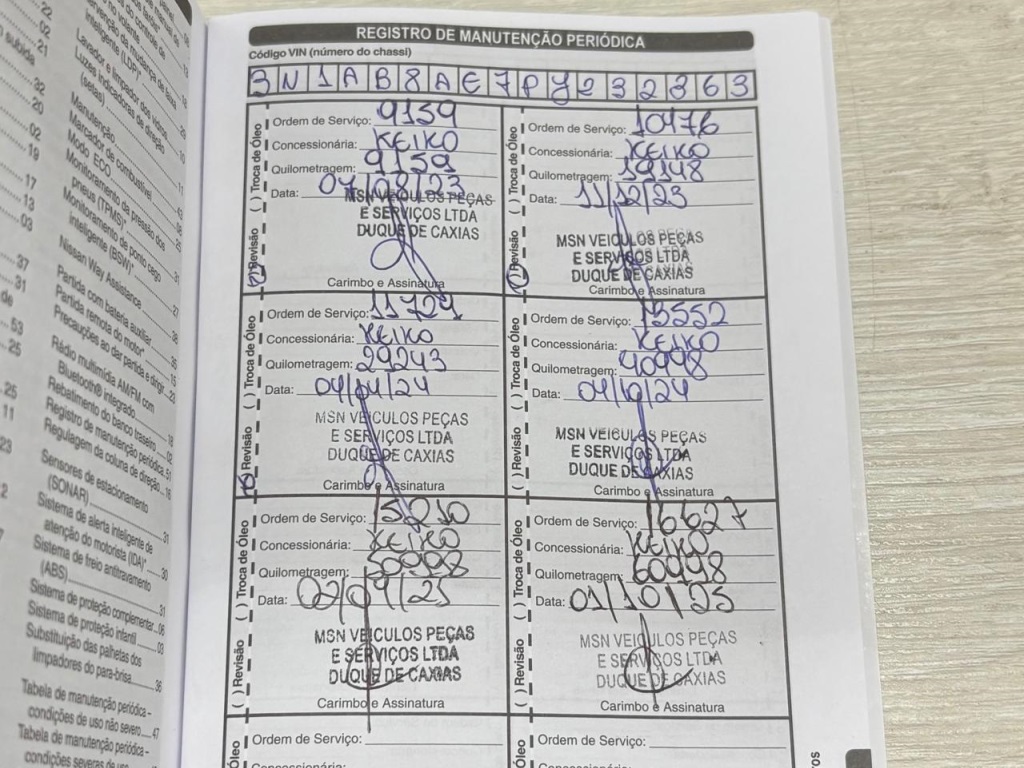 REGISTRO DE MANUTENÇÃO PERIÓDICA
Código VIN (número do chassi)
3N1AB8AE7PY232363
( ) Revisão ( ) Troca de Óleo
Ordem de Serviço: 9159
Concessionária: KEIKO
Quilometragem: 9159
Data:
MSN VEICULOS PEÇAS
E SERVIÇOS LTDA
DUQUE DE CAXIAS
Carimbo e Assinatura
( ) Revisão ( ) Troca de Óleo
Ordem de Serviço: 10476
Concessionária: KEIKO
Quilometragem: 19148
Data: 11/12/23
MSN VEICULOS PEÇAS
E SERVIÇOS LTDA
DUQUE DE CAXIAS
Carimbo e Assinatura
( ) Revisão ( ) Troca de Óleo
Ordem de Serviço: 11724
Concessionária: KEIKO
Quilometragem: 29243
Data: 04/04/24
MSN VEICULOS PEÇAS
E SERVIÇOS LTDA
DUQUE DE CAXIAS
Carimbo e Assinatura
( ) Revisão ( ) Troca de Óleo
Ordem de Serviço: 13552
Concessionária: KEIKO
Quilometragem: 40998
Data: 04/10/24
MSN VEICULOS PEÇAS
E SERVIÇOS LTDA
DUQUE DE CAXIAS
Carimbo e Assinatura
( ) Revisão ( ) Troca de Óleo
Ordem de Serviço: 15210
Concessionária: KEIKO
Quilometragem: 50998
Data: 02/04/25
MSN VEICULOS PEÇAS
E SERVIÇOS LTDA
DUQUE DE CAXIAS
Carimbo e Assinatura
( ) Revisão ( ) Troca de Óleo
Ordem de Serviço: 16627
Concessionária: KEIKO
Quilometragem: 60998
Data: 01/10/25
MSN VEICULOS PEÇAS
E SERVIÇOS LTDA
DUQUE DE CAXIAS
Carimbo e Assinatura
Óleo
Ordem de Serviço:
Concessionária:
Ordem de Serviço:
Concessionária:
Lavador e limpador dos vidros
Luzes indicadoras de direção
(setas)
Manutenção
Marcador de combustível
Modo ECO
Monitoramento da pressão dos
pneus (TPMS)*
Monitoramento de ponto cego
inteligente (BSW)*
Nissan Way Assistance
Partida com bateria auxiliar
Partida remota do motor*
Precauções ao dar partida e dirigir
Rádio multimídia AM/FM com
Bluetooth® integrado
Rebatimento do banco traseiro
Registro de manutenção periódica 51
Regulagem da coluna de direção
Sensores de estacionamento
(SONAR)
Sistema de alerta inteligente de
atenção do motorista (IDA)*
Sistema de freio antitravamento
(ABS)
Sistema de proteção complementar
Sistema de proteção infantil
Substituição das palhetas dos
limpadores do para-brisa 36
Tabela de manutenção periódica -
condições de uso não severo 47
Tabela de manutenção periódica -
condições severas de uso